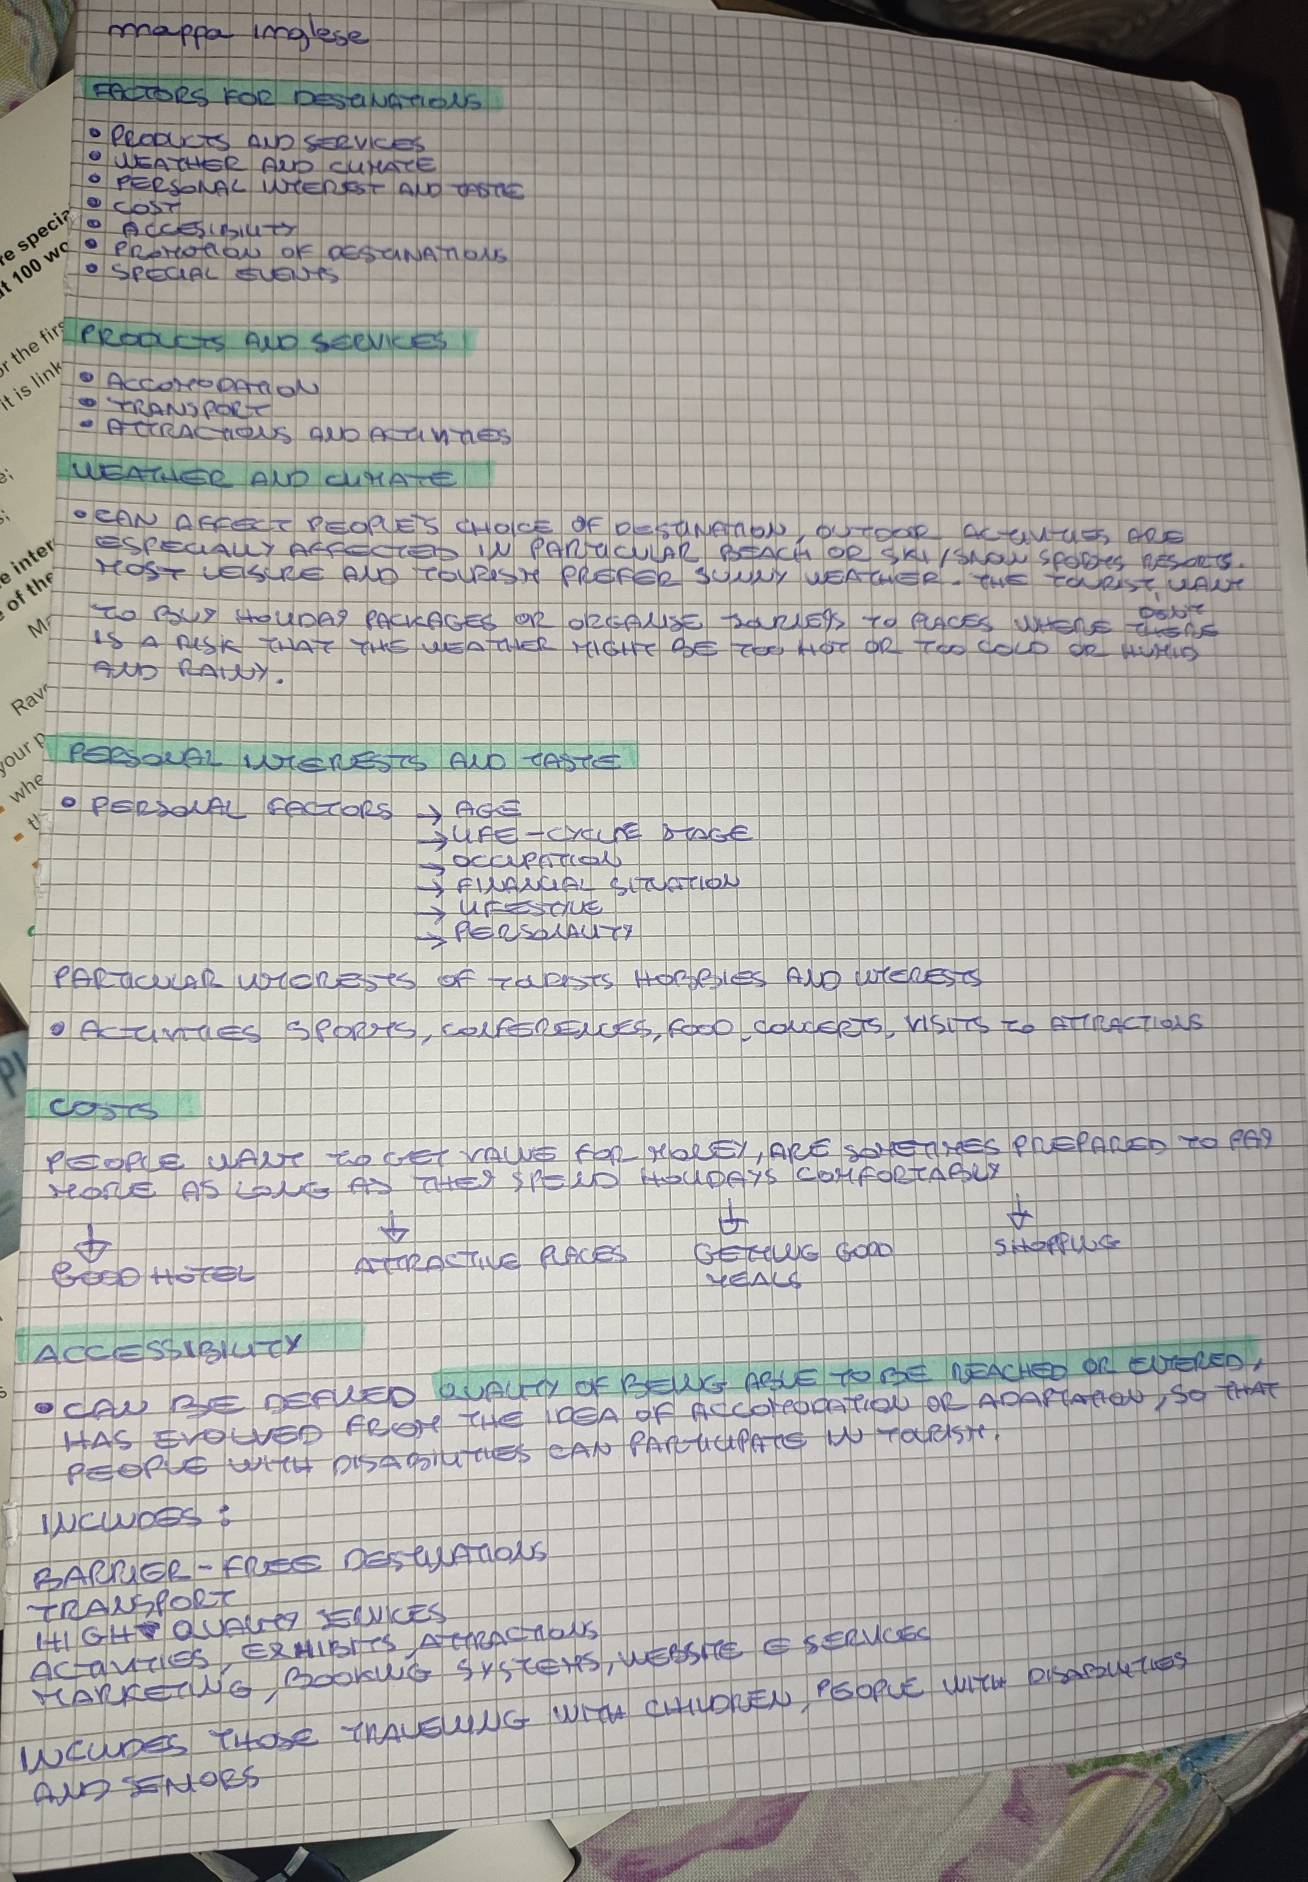 mappa inglese
FACTORS FOR DESTINATIONS
• PRODUCTS AND SERVICES
• WEATHER AND CLIMATE
• PERSONAL INTEREST AND TASTE
• COST
• ACCESIBILITY
• PROMOTION OF DESTINATIONS
• SPECIAL EVENTS
PRODUCTS AND SERVICES
• ACCOMODATION
• TRANSPORT
• ATTRACTIONS AND ACTIVITIES
WEATHER AND CLIMATE
• CAN AFFECT PEOPLE'S CHOICE OF DESTINATION, OUTDOOR ACTIVITIES ARE
ESPECIALLY AFFECTED IN PARTICULAR BEACH OR SKI/SNOW SPORTS RESORTS.
MOST LEISURE AND TOURISM PREFER SUNNY WEATHER. THE TOURIST WANT
TO BUY HOLIDAY PACKAGES OR ORGANISE TO PLACES WHERE THERE
IS A RISK THAT THE WEATHER MIGHT BE TOO HOT OR TOO COLD OR HUMID
AND RAINY.
PERSONAL INTERESTS AND TASTE
• PERSONAL FACTORS → AGE
→ LIFE-CYCLE STAGE
→ OCCUPATION
→ FINANCIAL SITUATION
→ LIFESTYLE
→ PERSONALITY
PARTICULAR INTERESTS OF TOURISTS HOBBIES AND INTERESTS
• ACTIVITIES SPORTS, CONFERENCES, FOOD, CONCERTS, VISITS TO ATTRACTIONS
COSTS
PEOPLE WANT TO GET VALUE FOR MONEY, ARE SOMETIMES PREPARED TO PAY
MORE AS LONG AS THEY SPEND HOLIDAYS COMFORTABLY
↓ ↓ ↓ ↓
GOOD HOTEL ATTRACTIVE PLACES GETTING GOOD SHOPPING
MEALS
ACCESSIBILITY
• CAN BE DEFINED QUALITY OF BEING ABLE TO BE REACHED OR ENTERED,
HAS EVOLVED FROM THE IDEA OF ACCOMODATION OR ADAPTATION, SO THAT
PEOPLE WITH DISABILITIES CAN PARTICIPATE IN TOURISM.
INCLUDES:
BARRIER-FREE DESTINATIONS
TRANSPORT
HIGH QUALITY SERVICES
ACTIVITIES, EXHIBITS, ATTRACTIONS
MARKETING, BOOKING SYSTEMS, WEBSITE E SERVICES
INCLUDES THOSE TRAVELLING WITH CHILDREN, PEOPLE WITH DISABILITIES
AND SENIORS